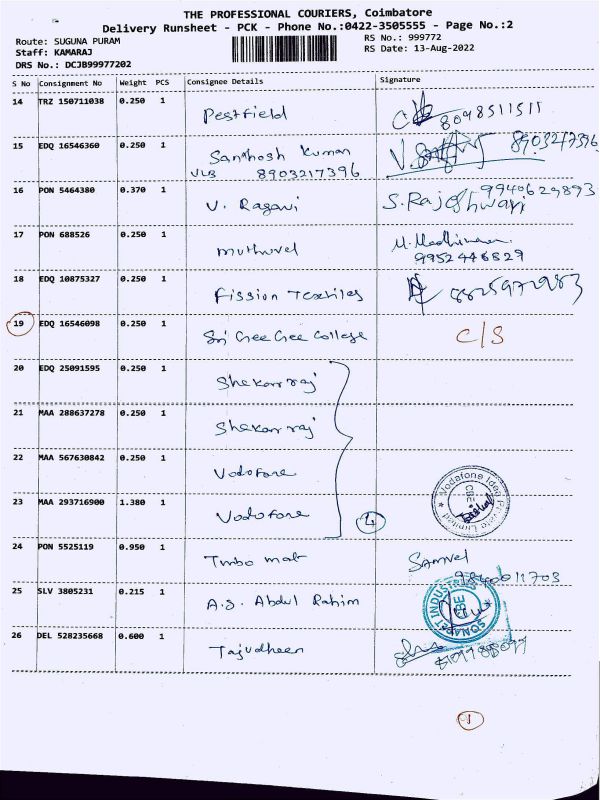 THE PROFESSIONAL COURIERS, Coimbatore
Delivery Runsheet - PCK - Phone No.:0422-3505555 - Page No.:2
Route: SUGUNA PURAM
RS No.: 999772
Staff: KAMARAJ
RS Date: 13-Aug-2022
DRS No.: DCJB99977202
S No Consignment No Weight PCS Consignee Details Signature
14 TRZ 150711038 0.250 1 Pestfield 8098511511
15 EDQ 16546360 0.250 1 Santhosh Kumar 8903217396
VLB 8903217396
16 PON 5464380 0.370 1 V. Ragavi S. Rajeshwari 9940629893
17 PON 688526 0.250 1 muthuvel M.
9952446829
18 EDQ 10875327 0.250 1 Fission Textiles
19 EDQ 16546098 0.250 1 Sri Gee Gee College C/S
20 EDQ 25091595 0.250 1 Shekarraj
21 MAA 288637278 0.250 1 Shekarraj
22 MAA 567630842 0.250 1 Vodofone
23 MAA 293716900 1.380 1 Vodofone
Vodafone Idea Private Limited
CBE
4
24 PON 5525119 0.950 1 Samvel
9840011703
25 SLV 3805231 0.215 1 A.S. Abdul Rahim
CBE
26 DEL 528235668 0.600 1 Tajudheen
1